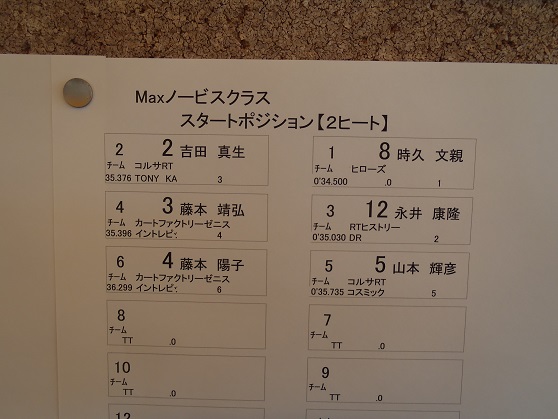 Maxノービスクラス
スタートポジション【2ヒート】
2 2 吉田 真生
チーム コルサRT
35.376 TONY KA 3
1 8 時久 文親
チーム ヒローズ
0'34.500 .0 1
4 3 藤本 靖弘
チーム カートファクトリーゼニス
35.396 イントレピッ 4
3 12 永井 康隆
チーム RTヒストリー
0'35.030 DR 2
6 4 藤本 陽子
チーム カートファクトリーゼニス
36.299 イントレピッ 6
5 5 山本 輝彦
チーム コルサRT
0'35.735 コスミック 5
8
チーム
TT .0
7
チーム
TT .0
10
チーム
TT .0
9
チーム
TT .0
12